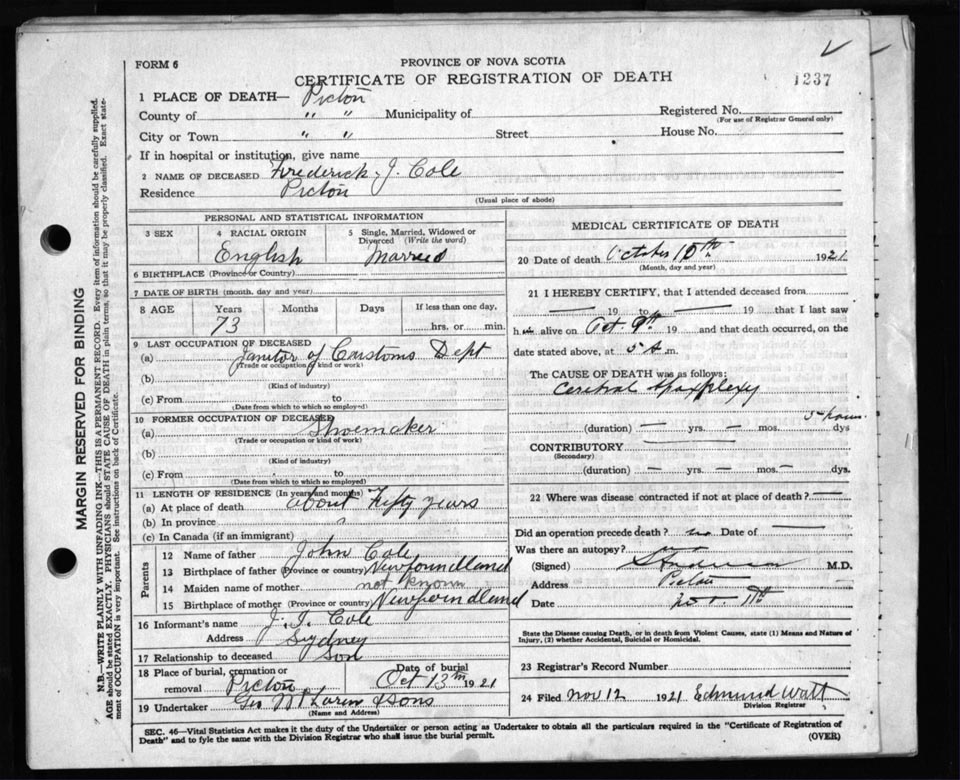 FORM 6
PROVINCE OF NOVA SCOTIA
CERTIFICATE OF REGISTRATION OF DEATH
1237
1 PLACE OF DEATH— Pictou
County of " " Municipality of
Registered No.
(For use of Registrar General only)
City or Town " " Street House No.
If in hospital or institution, give name
2 NAME OF DECEASED Frederick J. Cole
Residence Pictou
(Usual place of abode)
PERSONAL AND STATISTICAL INFORMATION
3 SEX 4 RACIAL ORIGIN 5 Single, Married, Widowed or Divorced (Write the word)
English Married
6 BIRTHPLACE (Province or Country)
7 DATE OF BIRTH (month, day and year)
8 AGE Years Months Days If less than one day,
73 hrs. or min.
9 LAST OCCUPATION OF DECEASED
(a) Janitor of Customs Dept
(Trade or occupation or kind of work)
(b)
(Kind of industry)
(c) From to
(Date from which to which so employed)
10 FORMER OCCUPATION OF DECEASED
(a) Shoemaker
(Trade or occupation or kind of work)
(b)
(Kind of industry)
(c) From to
(Date from which to which so employed)
11 LENGTH OF RESIDENCE (In years and months)
(a) At place of death about Fifty years
(b) In province "
(c) In Canada (if an immigrant)
Parents
12 Name of father John Cole
13 Birthplace of father (Province or country) Newfoundland
14 Maiden name of mother not known
15 Birthplace of mother (Province or country) Newfoundland
16 Informant's name J. J. Cole
Address Sydney
17 Relationship to deceased Son
18 Place of burial, cremation or removal Pictou
Date of burial Oct 13th 1921
19 Undertaker Geo & Sons
(Name and Address)
MEDICAL CERTIFICATE OF DEATH
20 Date of death October 10th 1921
(Month, day and year)
21 I HEREBY CERTIFY, that I attended deceased from
— 19 to — 19 — that I last saw
him alive on Oct 9th 19 and that death occurred, on the
date stated above, at 5 A.m.
The CAUSE OF DEATH was as follows:
Cerebral Apoplexy
5 hours
(duration) — yrs. — mos. dys
CONTRIBUTORY
(Secondary)
(duration) — yrs. — mos. — dys.
22 Where was disease contracted if not at place of death? —
Did an operation precede death? no Date of —
Was there an autopsy?
(Signed) Anderson M.D.
Address Pictou
Date 11th
State the Disease causing Death, or in death from Violent Causes, state (1) Means and Nature of
Injury, (2) whether Accidental, Suicidal or Homicidal.
23 Registrar's Record Number
24 Filed Nov 12 1921 Edmund Watt
Division Registrar
SEC. 46—Vital Statistics Act makes it the duty of the Undertaker or person acting as Undertaker to obtain all the particulars required in the "Certificate of Registration of
Death" and to fyle the same with the Division Registrar who shall issue the burial permit.
(OVER)
MARGIN RESERVED FOR BINDING
N.B.—WRITE PLAINLY WITH UNFADING INK—THIS IS A PERMANENT RECORD. Every item of information should be carefully supplied.
AGE should be stated EXACTLY. PHYSICIANS should STATE CAUSE OF DEATH in plain terms, so that it may be properly classified. Exact state-
ment of OCCUPATION is very important. See instructions on back of Certificate.